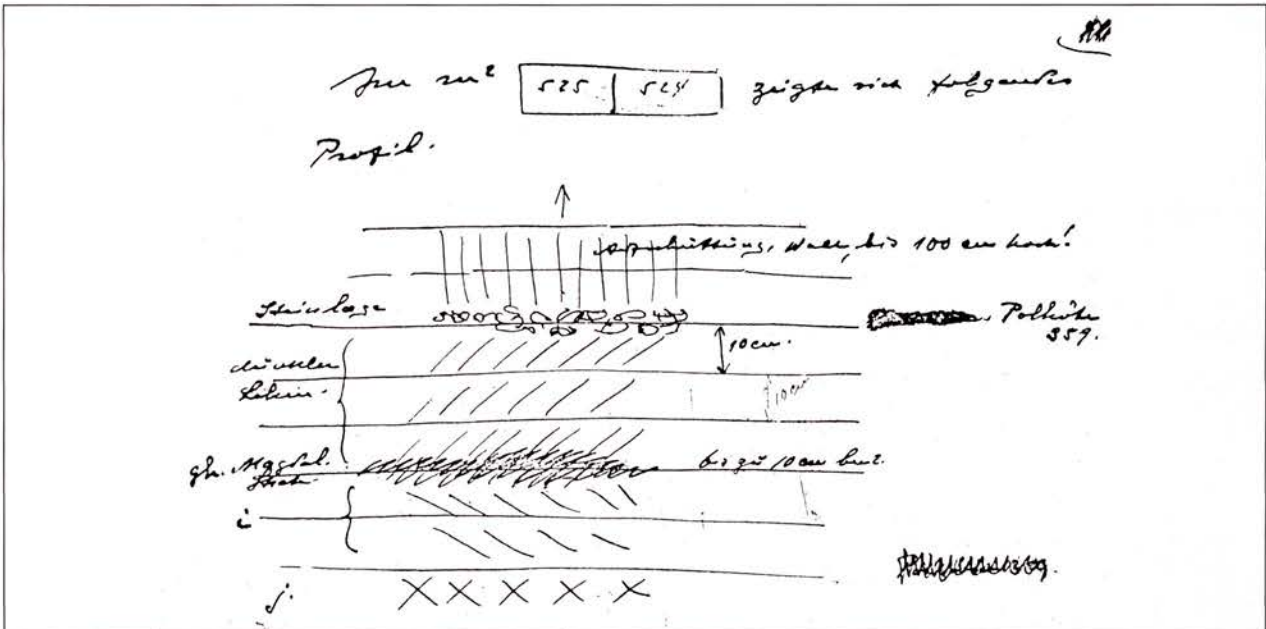 Im m² 525 524 zeigte sich folgendes
Profil.
Aufschüttung, Wall, bis 100 cm hoch!
Steinlage
Polhöhe
359.
10 cm.
dunkler
Lehm.
10 cm
gh. Magdal.
bis zu 10 cm
i
j.